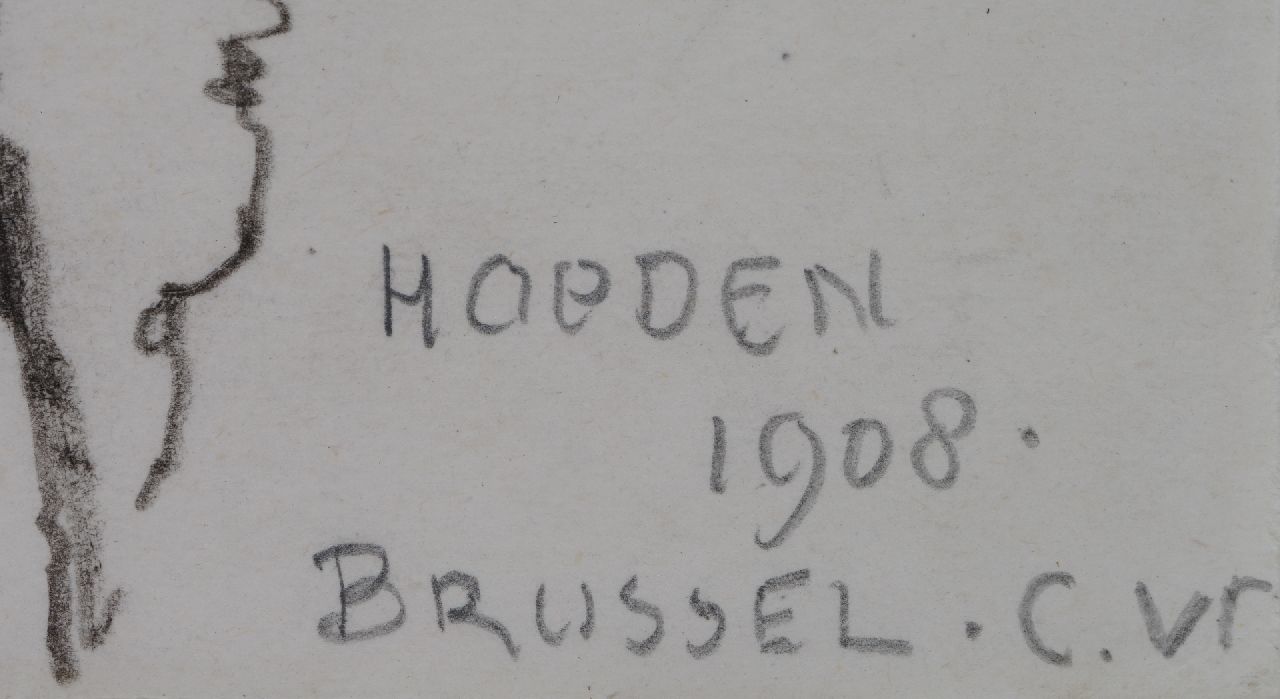 HOEDEN
1908.
BRUSSEL. C. Vr